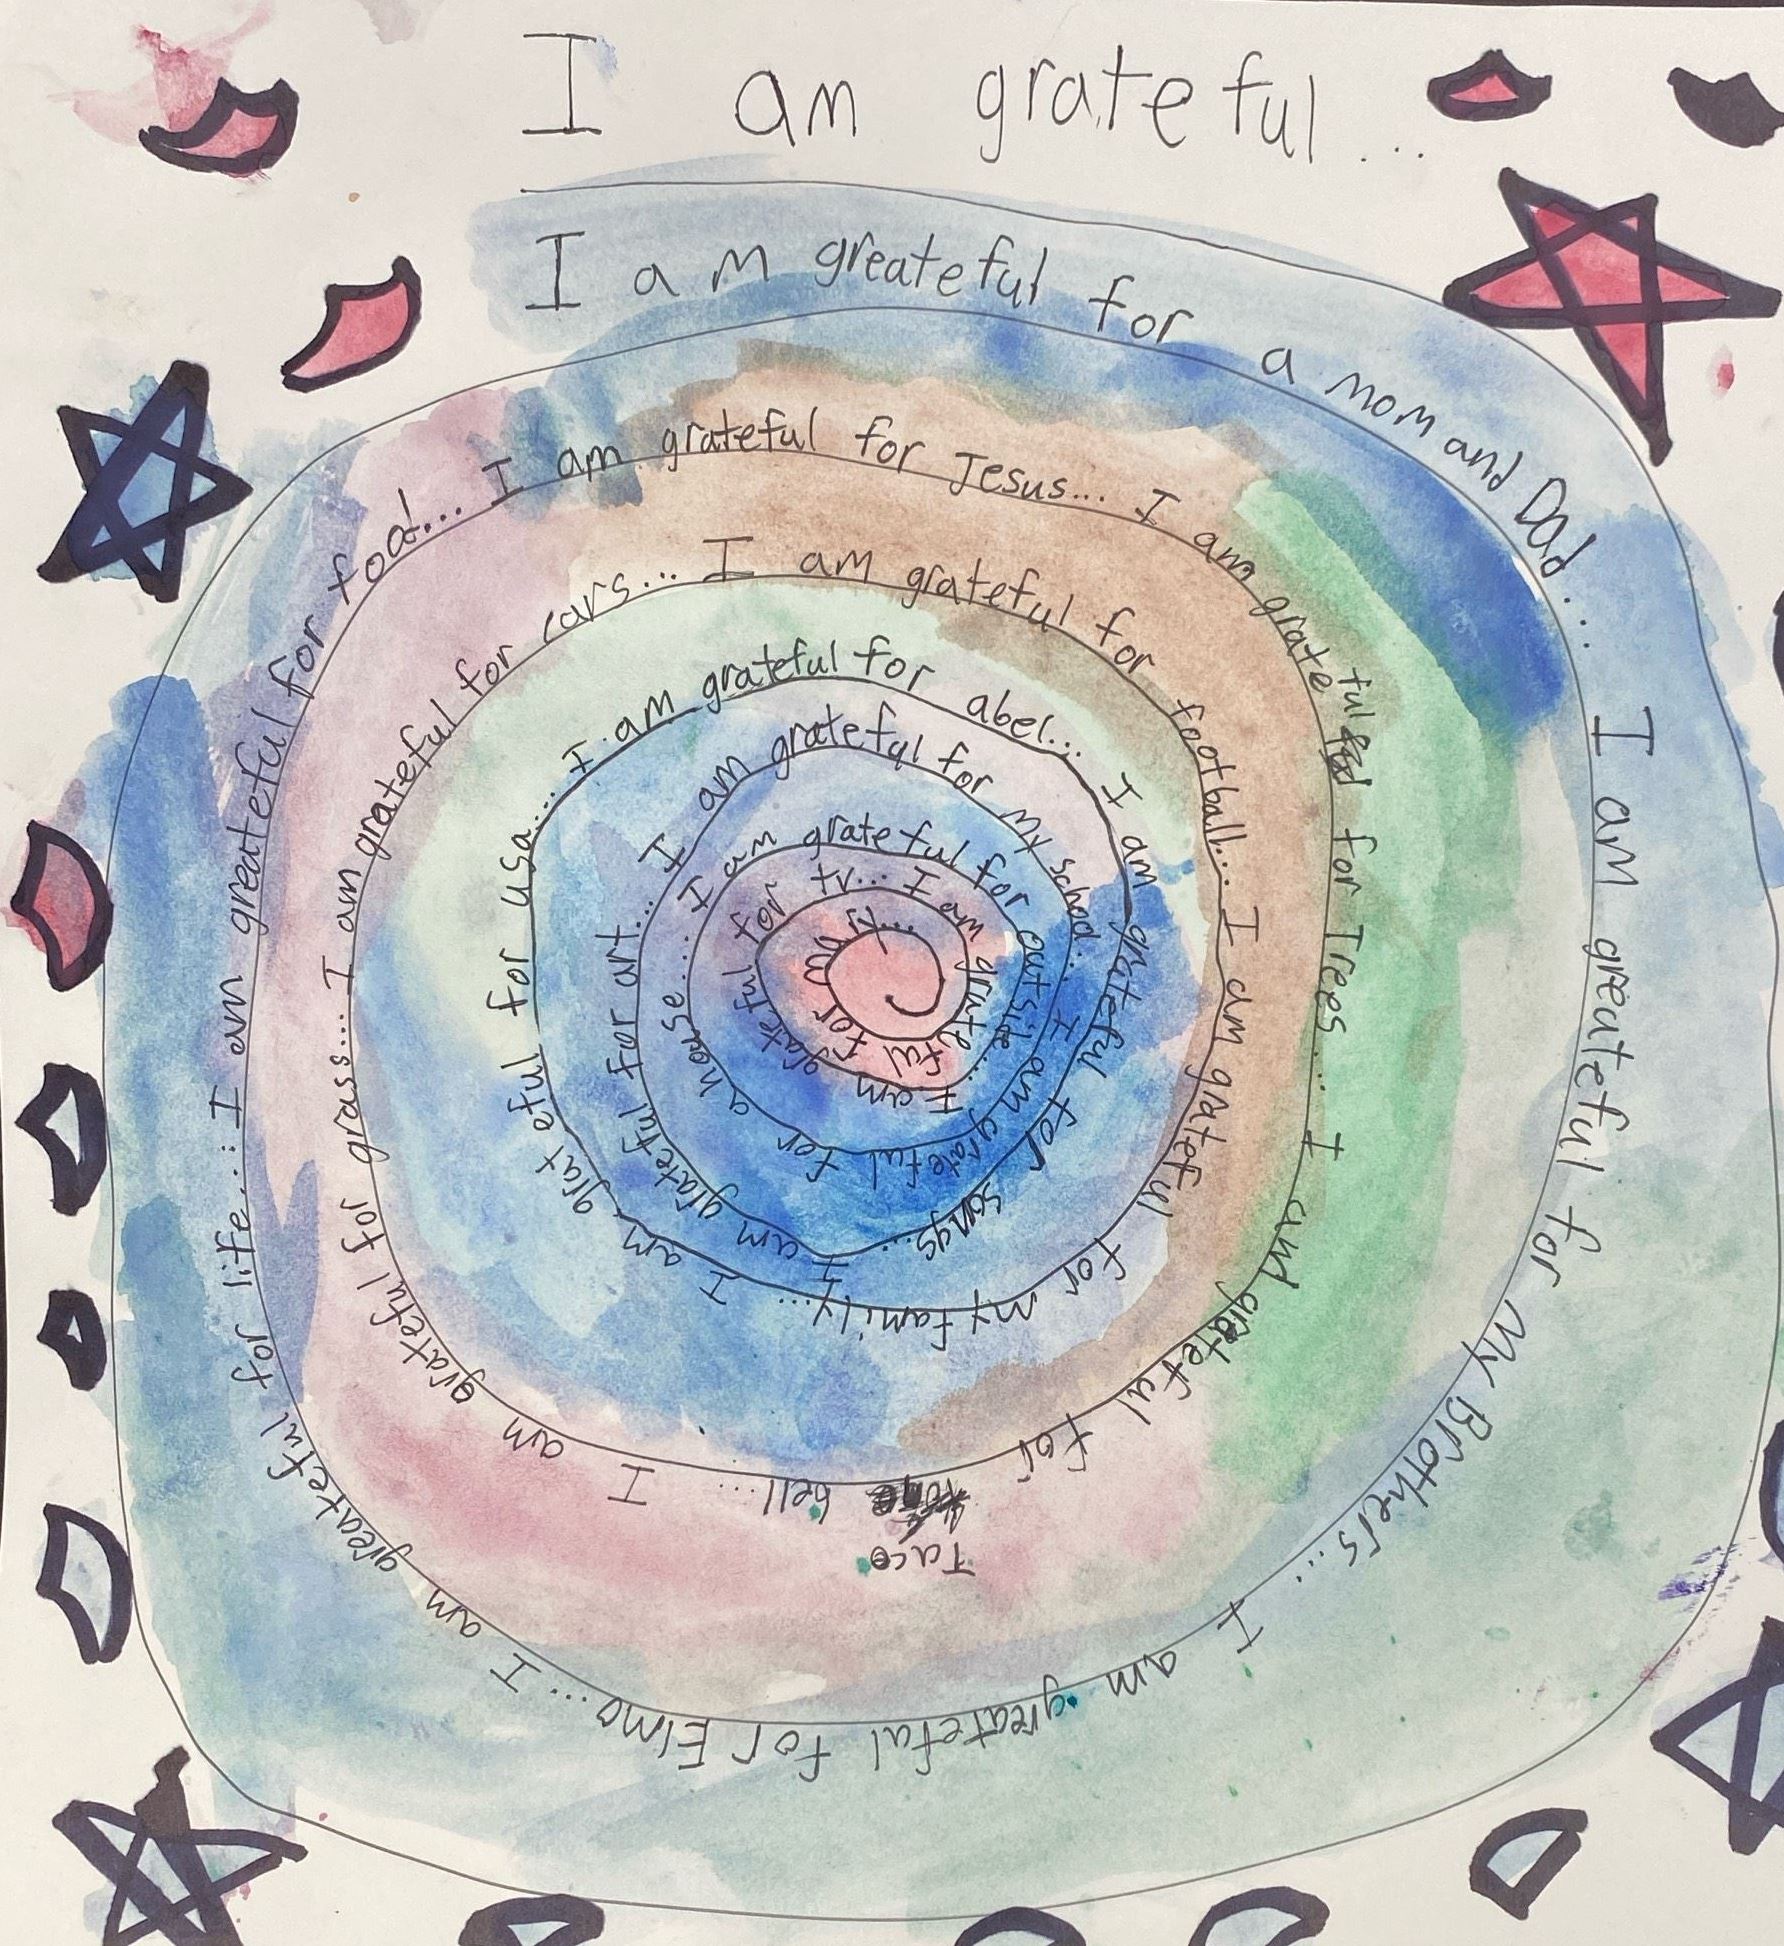 I am grateful...
I am greateful for a mom and Dad....
I am greateful for My Brothers...
I am greateful for Elmo...
I am greateful for life....
I am greateful for food...
I am grateful for Jesus...
I am grateful for Trees...
I am grateful for Taco bell....
I am grateful for grass...
I am grateful for cars...
I am grateful for football...
I am grateful for my family...
I am grateful for usa...
I am grateful for abel...
I am grateful for songs...
I am grateful for art...
I am grateful for my school...
I am grateful for a house....
I am grateful for outside...
I am grateful for tv...
I am grateful for mary...